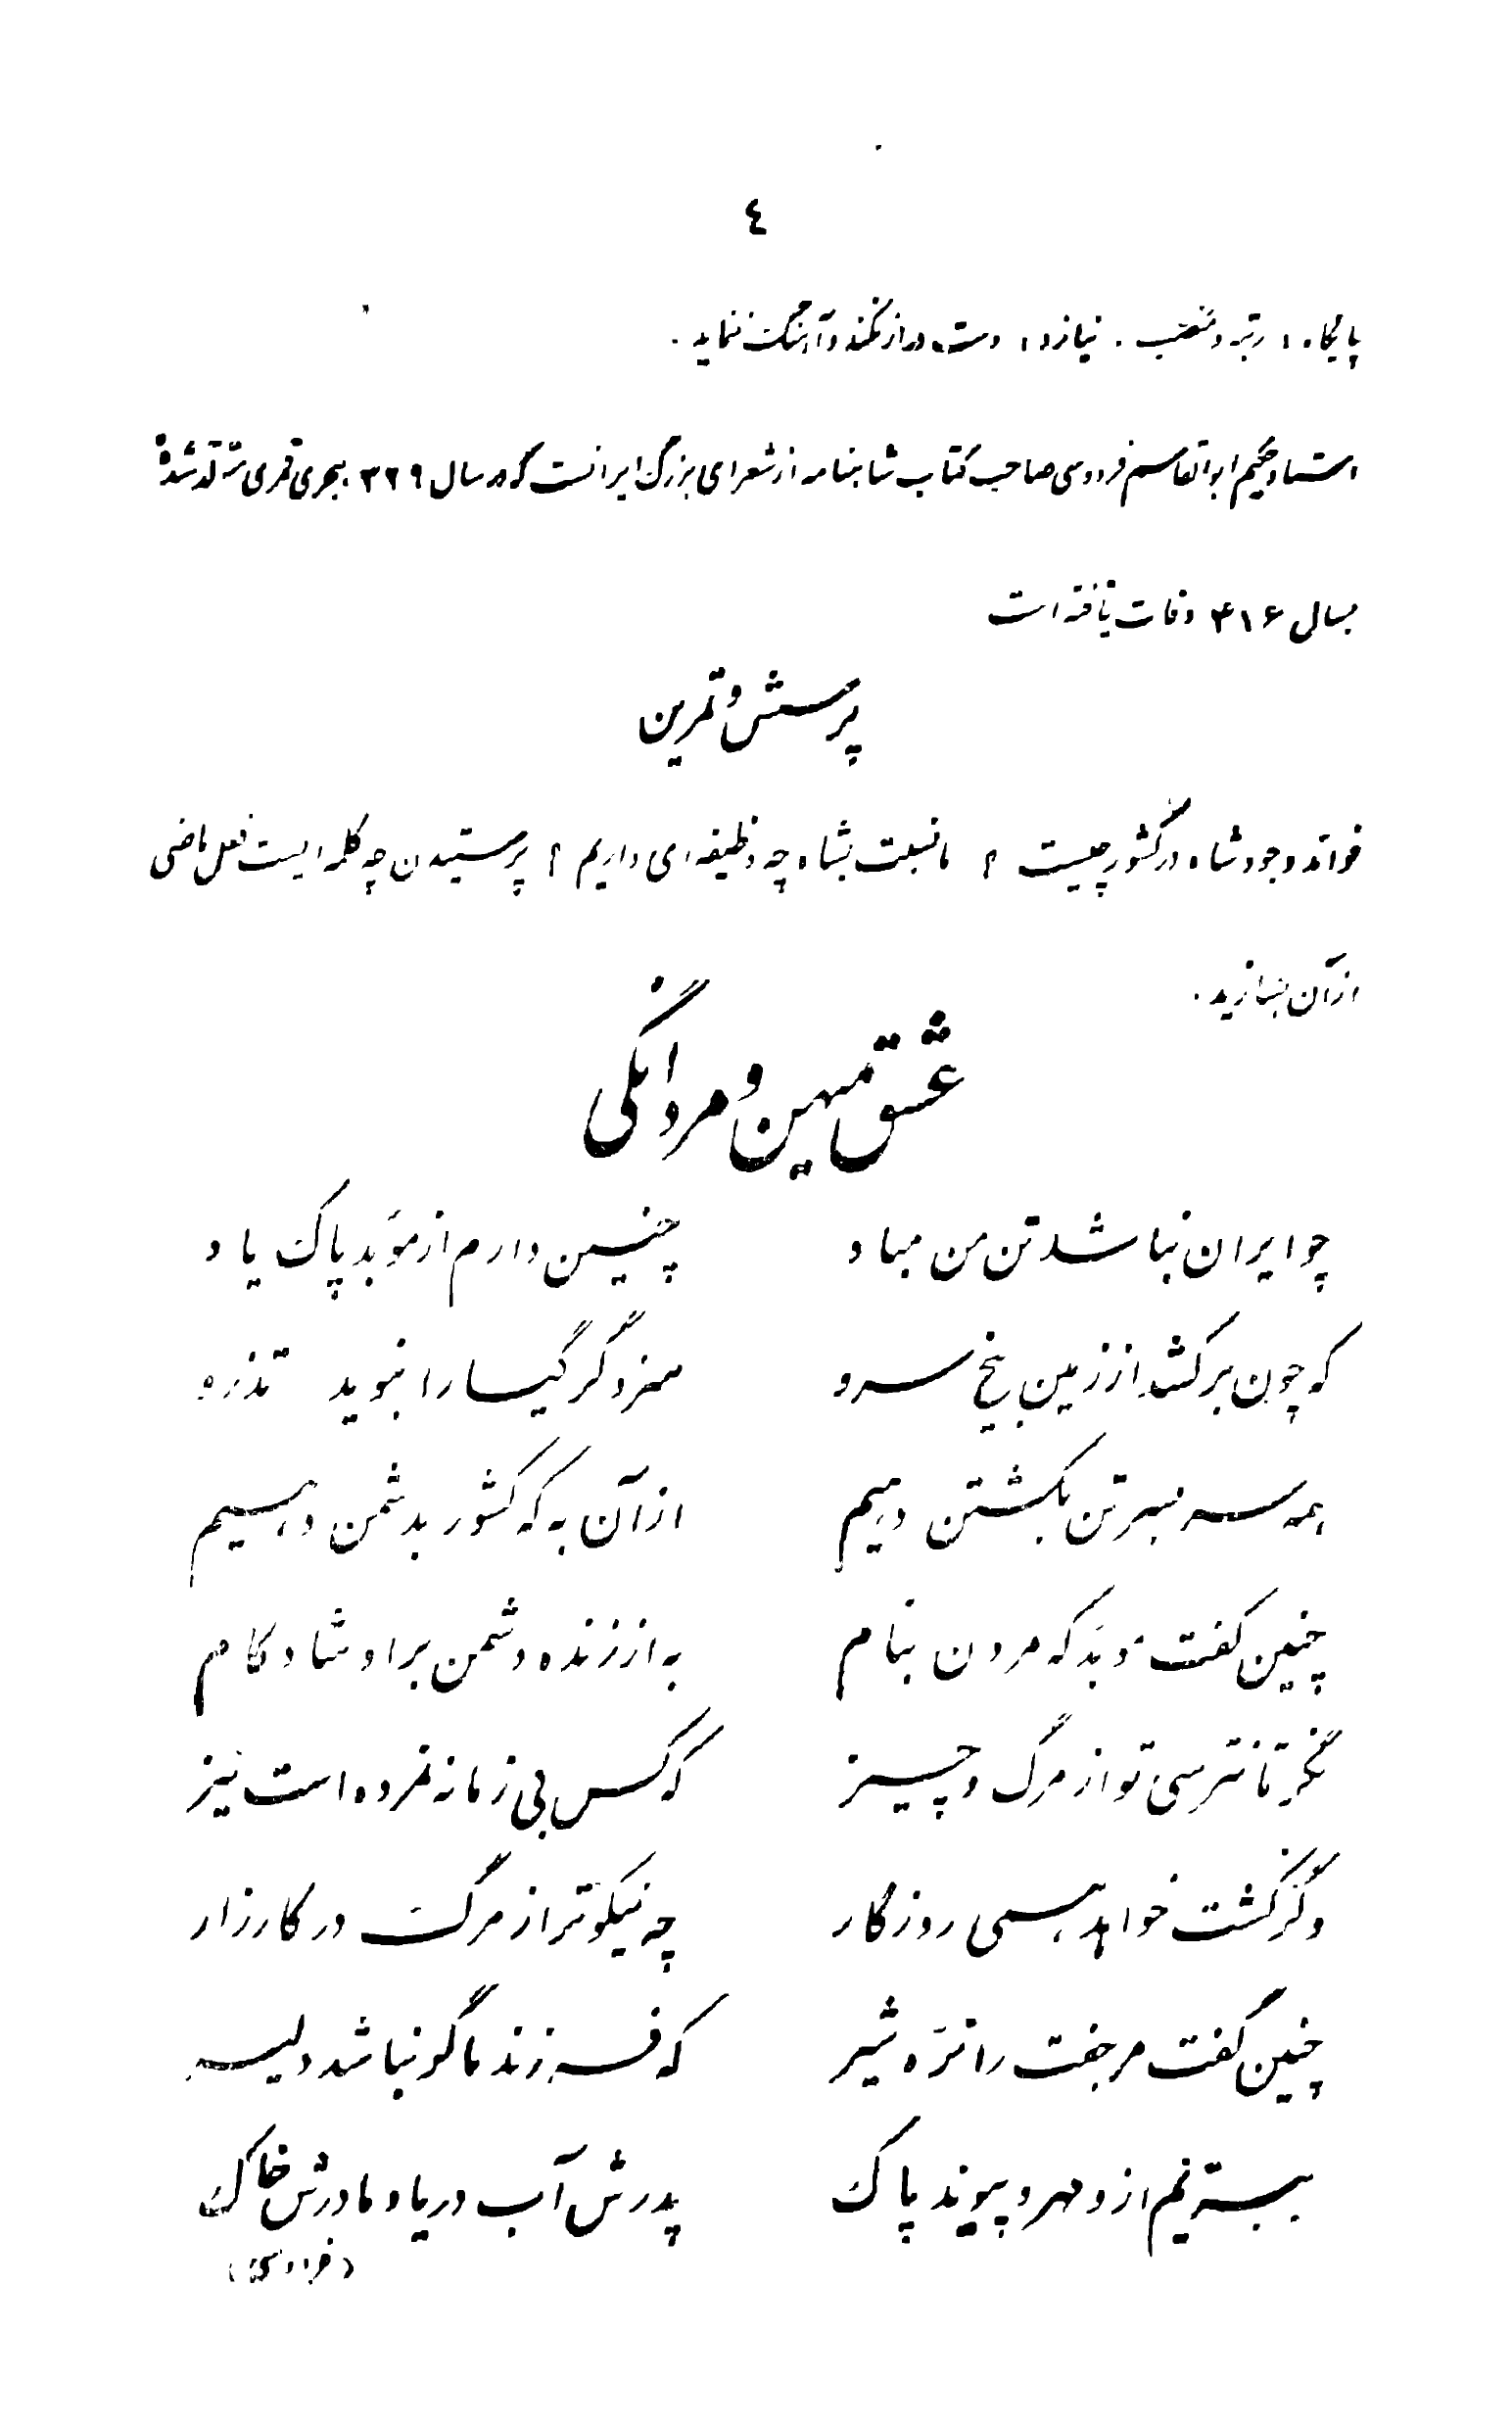 ٤
پایگاه، رتبه و منصب. نیازد، دست دراز نکند و آهنگ ننماید.
استاد حکیم ابوالقاسم فردوسی صاحب کتاب شاهنامه از شعرای بزرگ ایرانست که در سال ۳۲۹ هجری قمری متولد شده
بسال ۴۱۶ وفات یافته است
پرسش و تمرین
فوائد وجود شاه در کشور چیست ؟ ما نسبت بشاه چه وظیفه ای داریم ؟ پرستیدن چه کلمه ایست فعل ماضی
از آن بسازید.
عشق میهن و مردانگی
چو ایران نباشد تن من مباد چنین دارم از موبد پاک یاد
که چون برکشد از زمین بیخ سرو سزد گر گیا را نبوید تذرو
همه سر بسر تن بکشتن دهیم از آن به که کشور بدشمن دهیم
چنین گفت موبد که مردن بنام به از زنده دشمن بر او شاد کام
نگر تا نترسی تو از مرگ و چیز که کس بی زمانه نمرده است نیز
وگر کشت خواهد همی روزگار چه نیکوتر از مرگ در کارزار
چنین گفت مر جفت را نره شیر که فرزند ما گر نباشد دلیر
ببریم از و مهر و پیوند پاک پدرش آب دریا و مادرش خاک
(فردوسی)